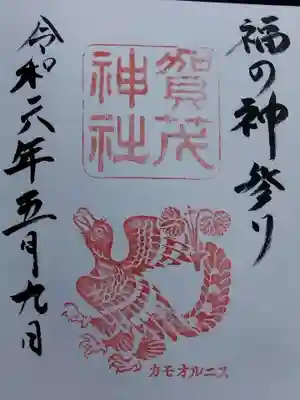 福の神参り
賀茂
神社
令和六年五月九日
カモオルニス